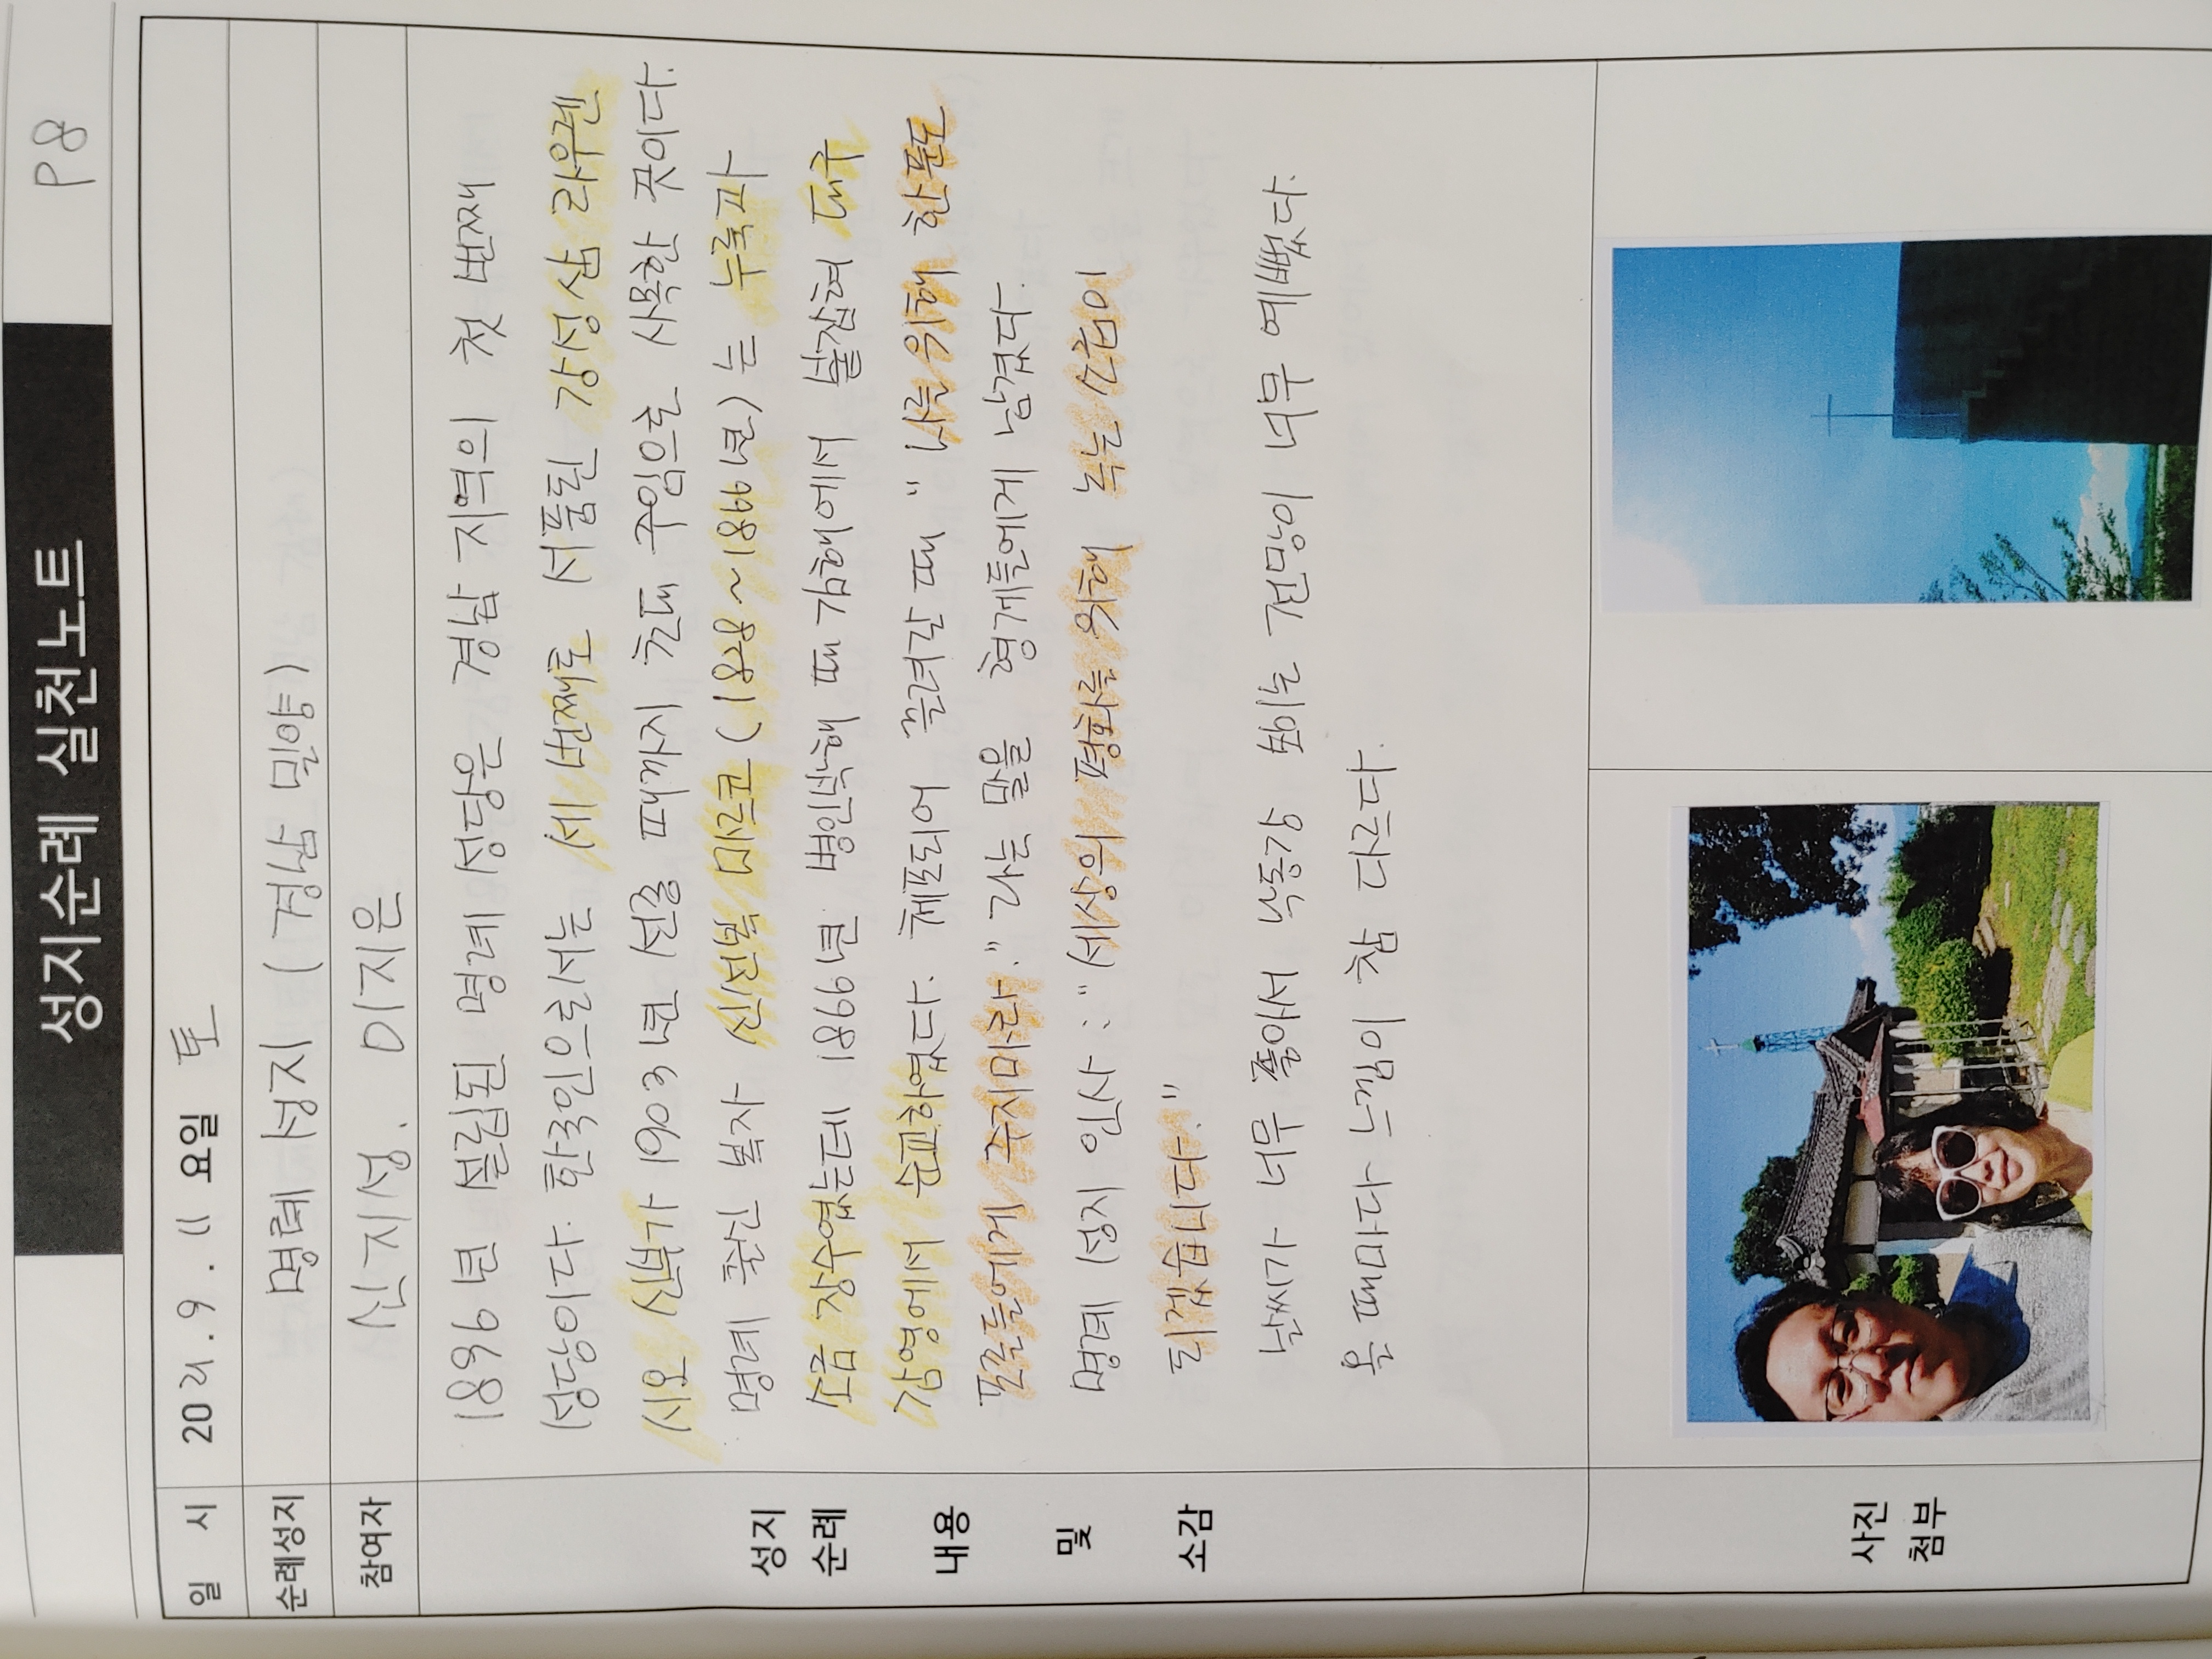 성지순례 실천노트
P8
일 시
2021.9.11 요일 토
순례성지
명례 성지 (경남 밀양)
참여자
신지성. 이지은
성지
순례
내용
및
소감
1896년 설립된 명례 성당은 경남 지역의 첫 번째
성당이다. 한국인으로서는 세 번째로 서품된 강성삼 라우렌
시오 신부가 1903년 선종 때까지 초대 주임으로 사목한 곳이다.
명례 출신 복자 신석복 마르코(1828~1866년)는 누룩과
소금 장수였는데 1866년 병인박해 때 김해에서 붙잡혀 대구
감영에서 순교하였다. 체포되어 끌려갈 때 "나를 위해 한푼도
포졸들에게 주지마라." 라는 말을 형게들에게 남겼다.
명례 성지 인사 : "세상의 평화를 위해 녹는 소금이
되겠습니다."
날씨가 너무 좋아서 낙동강 보이는 전망이 너무 예뻤다.
올 때마다 느낌이 참 다르다.
사진
첨부